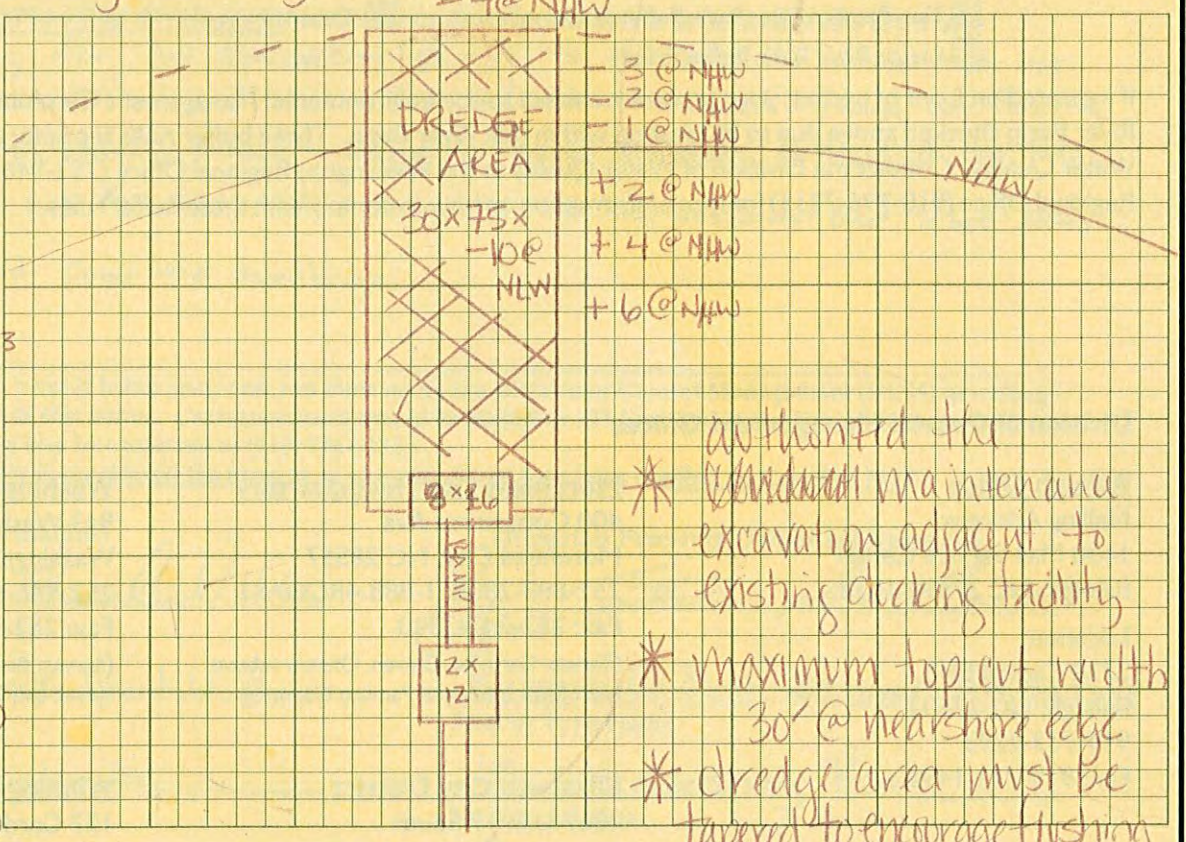 -4@ NHW
- 3 @ NHW
- 2 @ NHW
- 1 @ NHW
DREDGE
AREA
30x75x
-10@
NLW
+ 2 @ NHW
+ 4 @ NHW
+ 6 @ NHW
NHW
3
8x16
RAMP
12x
12
authorized the
* maintenance
excavation adjacent to
existing docking facility
* maximum top cut width
30' @ nearshore edge
* dredge area must be
tapered to encourage flushing